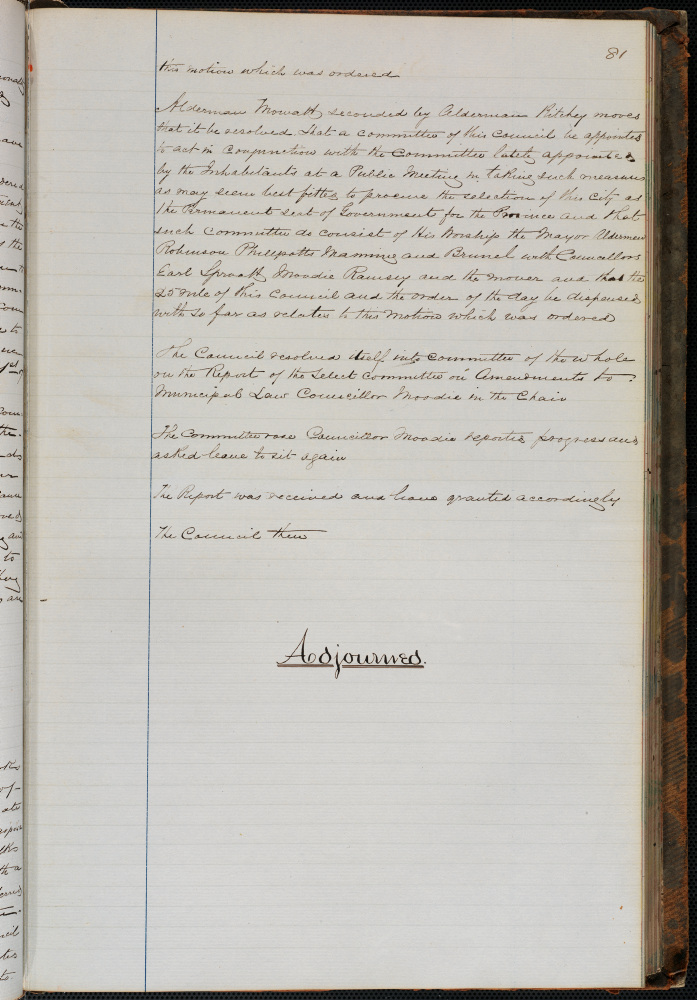 81
this motion which was ordered
Alderman Mowatt seconded by Alderman Ritchey moves
that it be resolved That a committee of this Council be appointed
to act in conjunction with the Committee lately appointed
by the Inhabitants at a Public Meeting in taking such measures
as may seem best fitted to procure the selection of this City as
the Permanent seat of Government for the Province and that
such committee do consist of His Worship the Mayor Aldermen
Robinson Phillpotts Manning and Brunel with Councillors
Earl Sproatt Moodie Ramsey and the mover and that the
25 rule of this Council and the order of the day be dispensed
with so far as relates to this Motion which was ordered
The Council resolved itself into committee of the whole
on the Report of the Select Committee on Amendments to
Municipal Law Councillor Moodie in the Chair
The Committee rose Councillor Moodie reported progress and
asked leave to sit again
The Report was received and leave granted accordingly
The Council then
Adjourned.